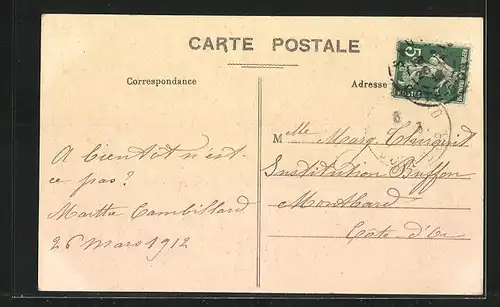 CARTE POSTALE
Correspondance
Adresse
A bientôt n'est-
ce pas?
Marthe Cambillard
26 mars 1912
Mlle Marg. Clungint
Institution Buffon
Montbard
Côte-d'Or
5